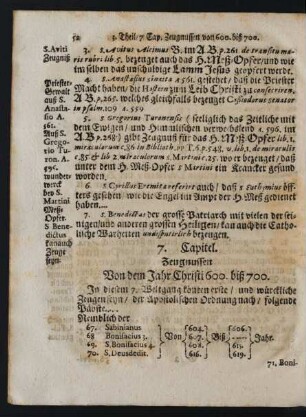 52 2. Theil/ 7. Cap. Zeugnussen von 600. biß 700.
S. Aviti
Zeugnuß
3. S. Avitus Alcimus B. im A B. p. 261 de transitu ma-
ris rubri lib. 5. bezeuget auch das H. Meß-Opfer/ und wie
im selben das unschuldige Lamm Jesus geopfert werde.
Priester-
Gewalt
auß S.
Anasta-
sio A.
561.
4. S. Anastasius sinaita A 561. gestehet/ daß die Priester
Macht haben/ die Hostien zu in Leib Christi zu consecriren.
A B. p. 265. welches gleichfalls bezeuget Cassiodorus senator
in psalm. 109 A. 559
Auß S.
Grego-
rio Tu-
ron. A.
596.
wunder-
werck
bey S.
Martini
Meße
Opfer.
5. S Gregorius Turonensis (seeliglich das Zeitliche mit
dem Ewigen/ und Himmlischen verwechslend A. 596. im
A B. p. 268) gibt Zeugnuß für das H. Meß-Opfer lib. 1.
miraculorum c. 86 in Biblioth. vv T. 6. p. 548. u. lib. 2. de miraculis
c. 85. & lib 2. miraculorum S. Martini c. 25. wo er bezeuget/ daß
unter dem H. Meß-Opfer S Martini ein Krancker gesund
worden.
6. S Cyrillus Eremita referirt auch/ daß S Euthymius öff-
ters gesehen/ wie die Engel im Ampt der H Meß gedienet
haben.
S Bene
dictus
kan auch
Zeuge
seyn.
7. S. Benedictus der grosse Patriarch mit vielen der sei-
nigen/ und anderen grossen Heiligen/ kan auch die Catho-
lische Warheiten undisputirlich bezeugen.
7. Capitel.
Zeugnussen
Von dem Jahr Christi 600. biß 700.
In diesem 7. Weltgang können erste/ und würckliche
Zeugen seyn/ der Apostolischen Ordnung nach/ folgende
Päbste.
Nemblich der
67. Sabinianus Von 604. Biß 606. Jahr.
68 Bonifacius 3. 607. 607.
69. S. Bonifacius 4. 608. 615.
70. S. Deusdedit. 616. 619.
71. Boni-